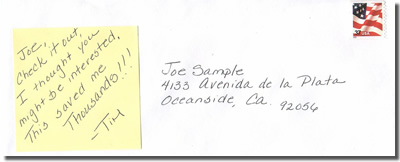 Joe,
Check it out,
I thought you
might be interested.
This saved me
Thousands!!!
-Tim
Joe Sample
4133 Avenida de la Plata
Oceanside, Ca. 92056